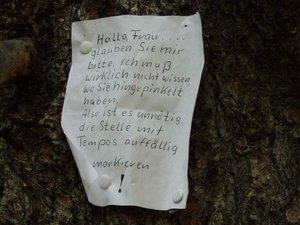 Hallo, Frau....
glauben Sie mir
bitte, ich muß
wirklich nicht wissen
wo Sie hingepinkelt
haben.
Also ist es unnötig,
die Stelle mit
Tempos auffällig
markieren
!